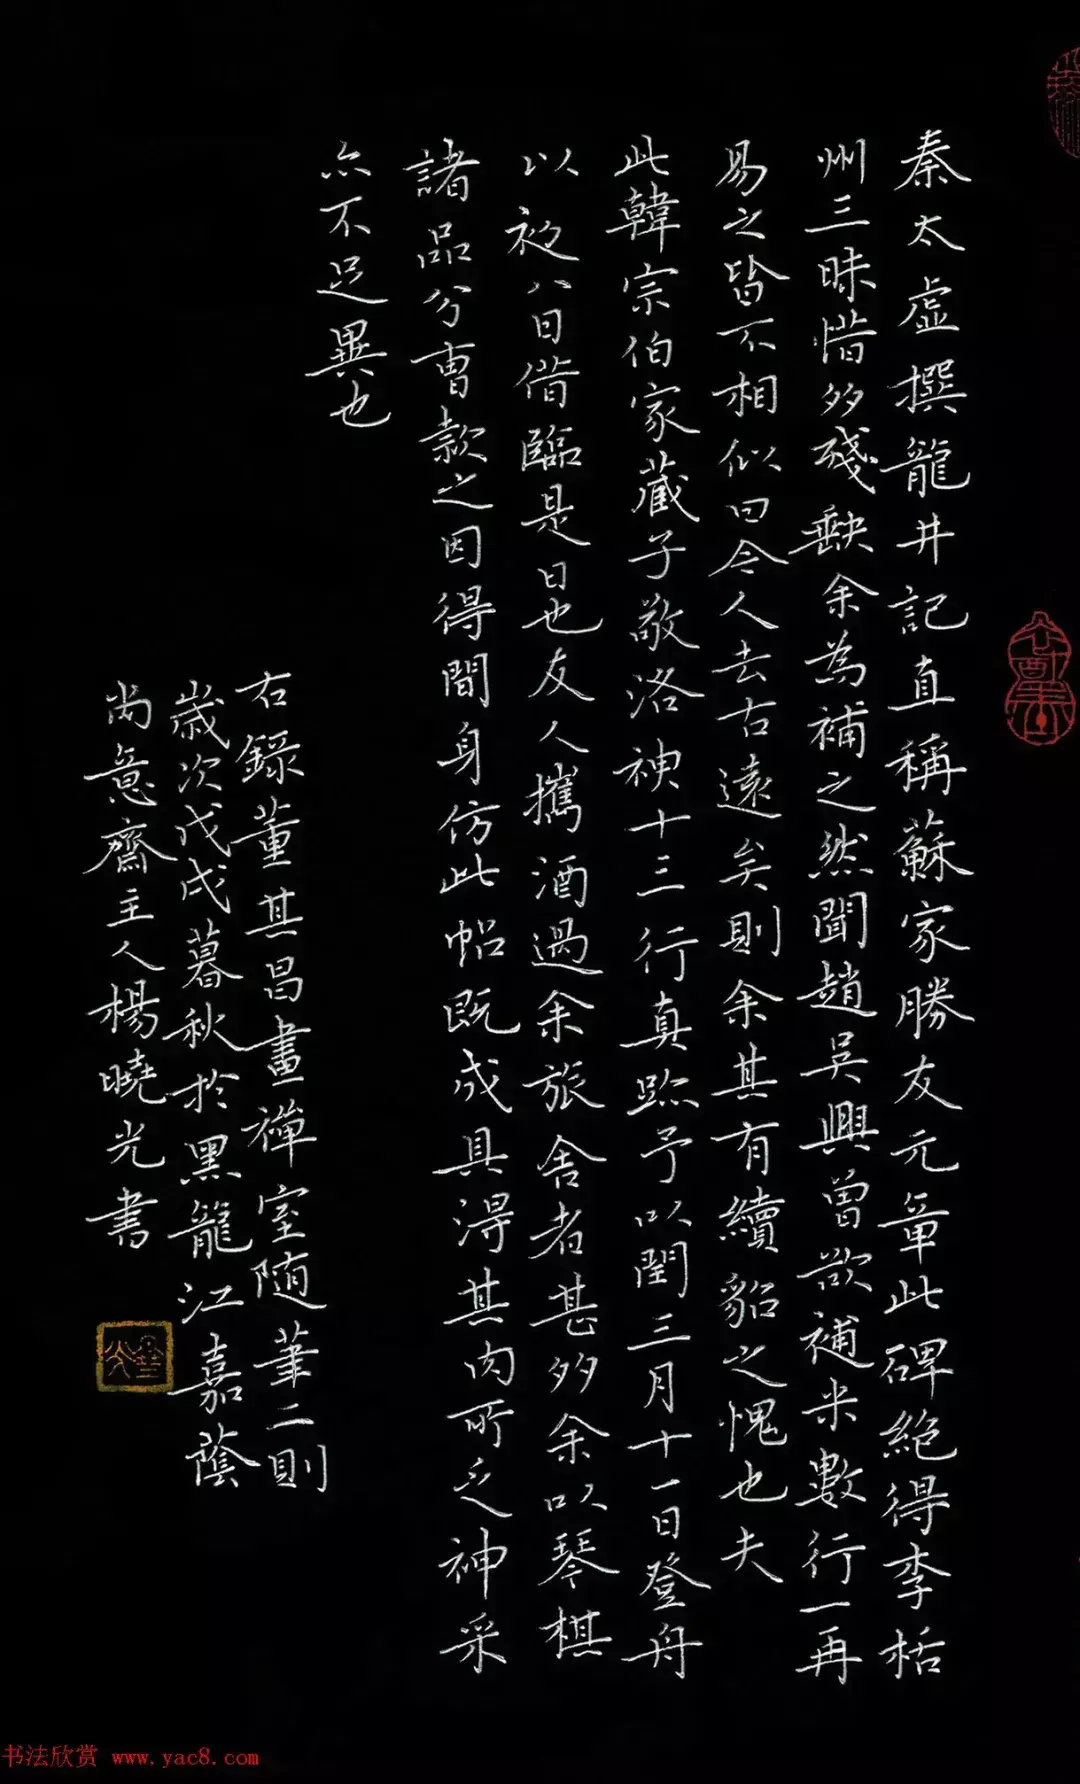 秦太虛撰龍井記直稱蘇家勝友元章此碑絶得李栝
州三昧惜多殘缺余為補之然聞趙吴興曾欲補米數行一再
易之皆不相似曰今人去古遠矣則余其有續貂之愧也夫
此韓宗伯家藏子敬洛神十三行真跡予以閏三月十一日登舟
以初八日借臨是日也友人攜酒過余旅舍者甚多余以琴棋
諸品分曹款之因得閒身仿此帖既成具得其肉所乏神采
亦不足異也
右録董其昌畫禪室随筆二則
歲次戊戌暮秋於黑龍江嘉蔭
尚意齋主人楊曉光書
书法欣赏 www.yac8.com